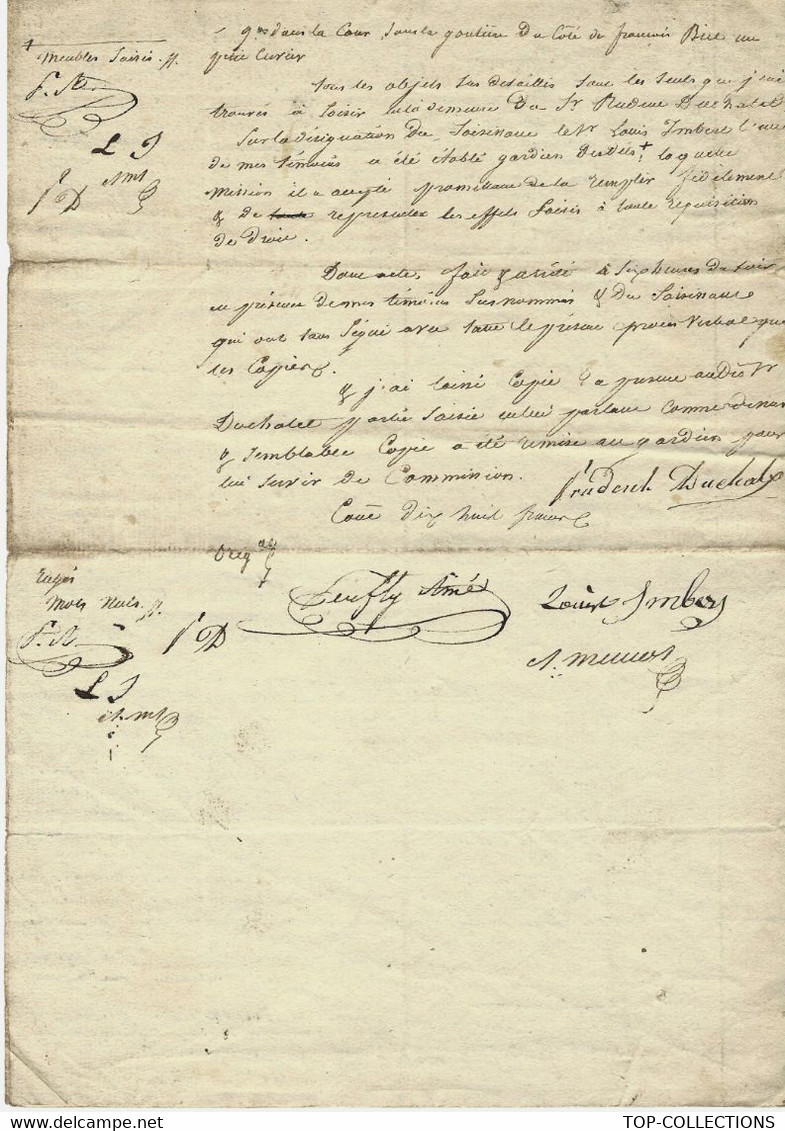 dans la Cour, sous la goutière du Coté de françois Biet un
petit Cuvier
+
Meubles Saisis
tous les objets sus detaillés sont les seuls que j'ai
trouvés à Saisir en la demeure du Sr Duchatel
Sur la désignation du Saisissant le Sr Louis Imbert l'un
de mes témoins a été établi gardien desdits + laquelle
Mission il a accepté promettant de la remplir fidèlement
& de representer les effets Saisis à toute requisition
de Droit.
L I
P D
Amt
Dont acte, fait & arrêté à Six heures du soir
en présence de mes témoins Susnommés & du Saisissant
qui ont tous Signé avec le présent procès Verbal que
les Copies
& j'ai laissé Copie du present audit Sr
Duchatel partie Saisie en lui parlant comme dessus
& semblable Copie a été remise au gardien pour
lui servir de Commission.
Prudent Duchatel
Coût Dix huit francs
Rayés
Mots Nuls
P D
Aîné
Louis Imbert
L I
TOP-COLLECTIONS